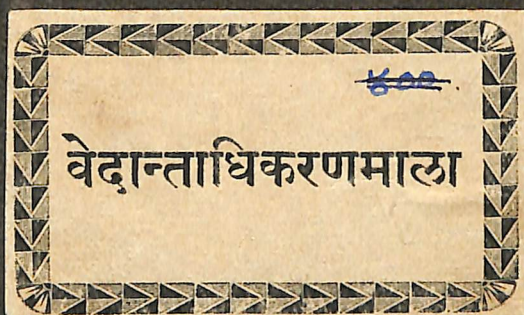 ४००
वेदान्ताधिकरणमाला